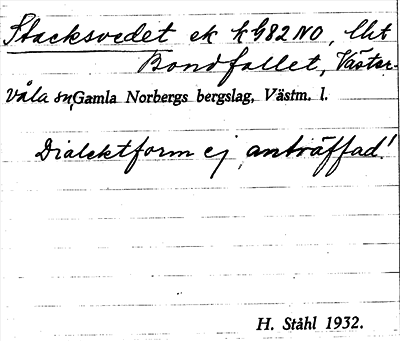 Stacksvedet ek k 982 NO, Ut
Bondfallet, Väster-
våla sn, Gamla Norbergs bergslag, Västm. l.
Dialektform ej anträffad!
H. Ståhl 1932.